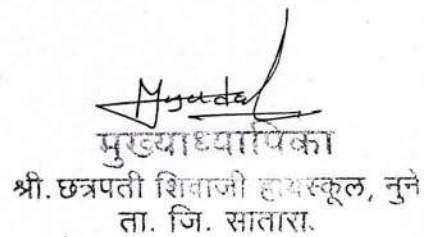 मुख्याध्यापिका
श्री. छत्रपती शिवाजी हायस्कूल, नुने
ता. जि. सातारा.